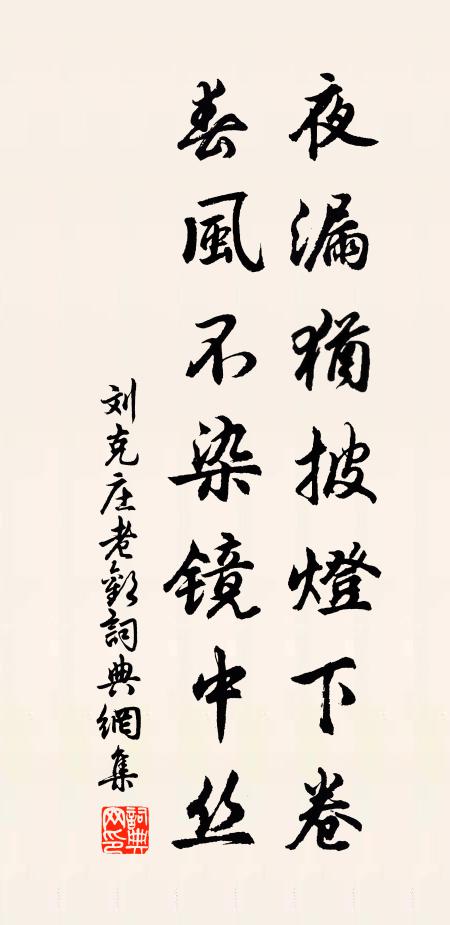 夜漏猶披燈下卷
春風不染鏡中丝
刘克庄老歎詞典網集
詞典網印